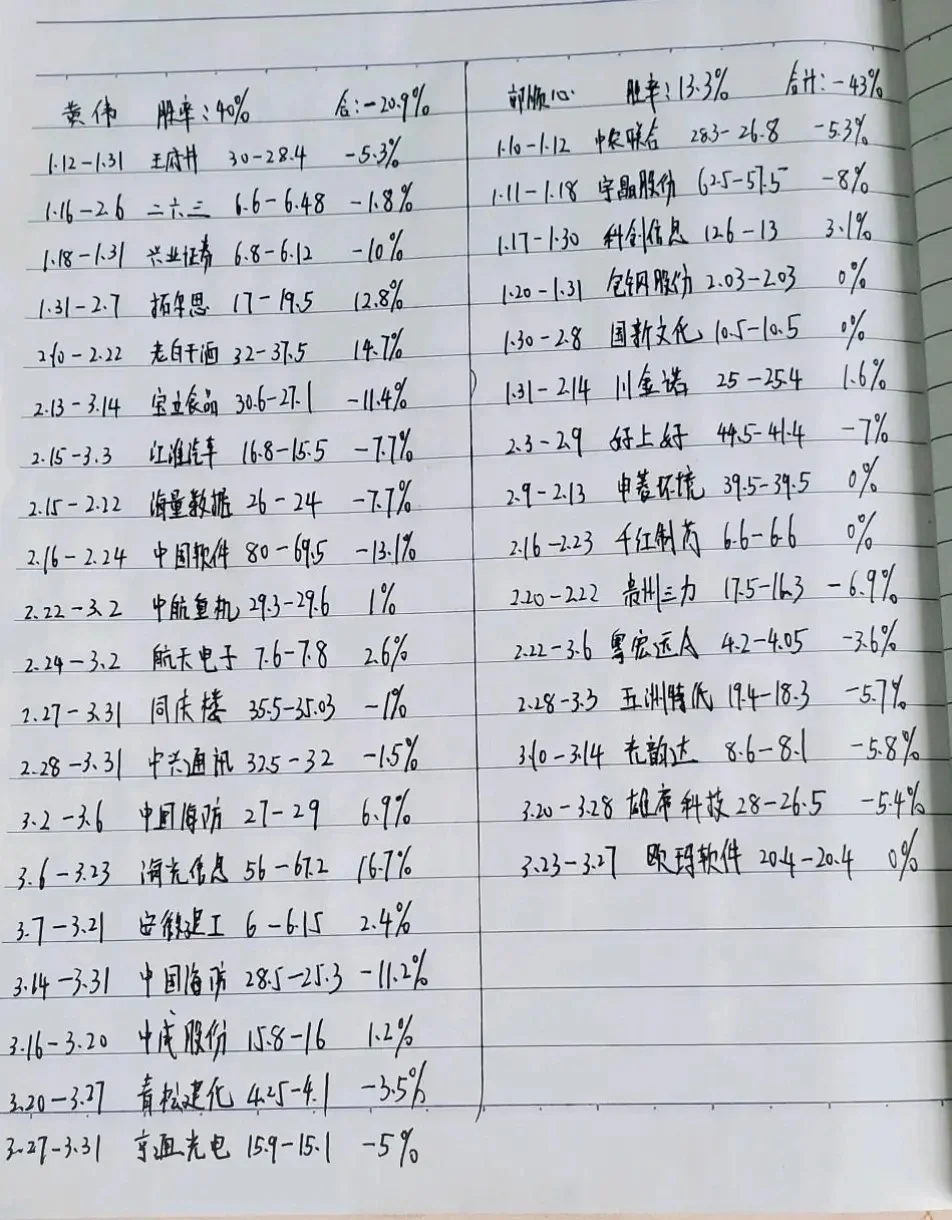 黄伟 胜率:40% 合:-20.9%
1.12-1.31 王府井 30-28.4 -5.3%
1.16-2.6 二六三 6.6-6.48 -1.8%
1.18-1.31 兴业证券 6.8-6.12 -10%
1.31-2.7 拓尔思 17-19.5 12.8%
2.10-2.22 老白干酒 32-37.5 14.7%
2.13-3.14 宝立食品 30.6-27.1 -11.4%
2.15-3.3 江淮汽车 16.8-15.5 -7.7%
2.15-2.22 海量数据 26-24 -7.7%
2.16-2.24 中国软件 80-69.5 -13.1%
2.22-3.2 中航重机 29.3-29.6 1%
2.24-3.2 航天电子 7.6-7.8 2.6%
2.27-3.31 同庆楼 35.5-35.03 -1%
2.28-3.31 中兴通讯 32.5-32 -1.5%
3.2-3.6 中国海防 27-29 6.9%
3.6-3.23 海光信息 56-67.2 16.7%
3.7-3.21 安徽建工 6-6.15 2.4%
3.14-3.31 中国海防 28.5-25.3 -11.2%
3.16-3.20 中成股份 15.8-16 1.2%
3.20-3.27 青松建化 4.25-4.1 -3.5%
3.27-3.31 光电 15.9-15.1 -5%
顺心 胜率:13.3% 合计:-43%
1.10-1.12 中农联合 28.3-26.8 -5.3%
1.11-1.18 宇晶股份 62.5-57.5 -8%
1.17-1.30 科创信息 12.6-13 3.1%
1.20-1.31 包钢股份 2.03-2.03 0%
1.30-2.8 国新文化 10.5-10.5 0%
1.31-2.14 川金诺 25-25.4 1.6%
2.3-2.9 好上好 44.5-41.4 -7%
2.9-2.13 申菱环境 39.5-39.5 0%
2.16-2.23 千红制药 6.6-6.6 0%
2.20-2.22 贵州三力 17.5-16.3 -6.9%
2.22-3.6 粤宏远A 4.2-4.05 -3.6%
2.28-3.3 五洲特纸 19.4-18.3 -5.7%
3.10-3.14 光韵达 8.6-8.1 -5.8%
3.20-3.28 雄帝科技 28-26.5 -5.4%
3.23-3.27 欧玛软件 20.4-20.4 0%